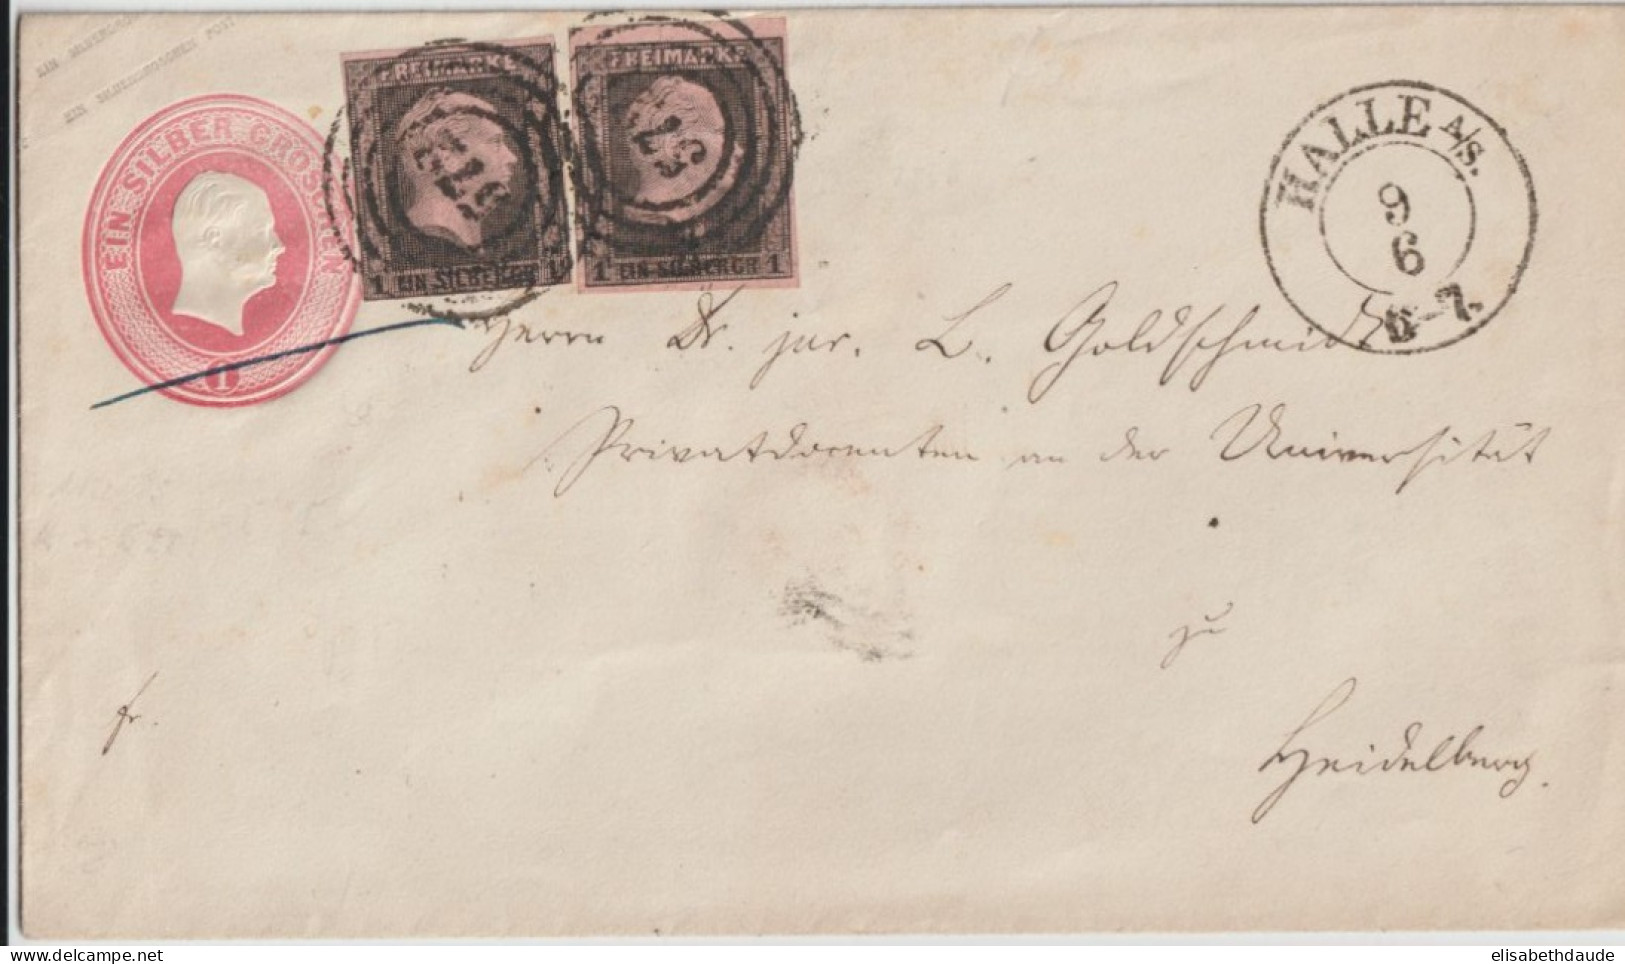 EIN SILBERGROSCHEN POST
EIN SILBER GROSCHEN
1
FREIMARKE
1 EIN SILBERGR 1
FREIMARKE
1 EIN SILBERGR 1
HALLE A/S.
9
6
6-7.
Herrn Dr. jur. L. Goldschmidt
Privatdocenten an der Universität
zu
Heidelberg.
fr.
elisabethdaude
delcampe.net